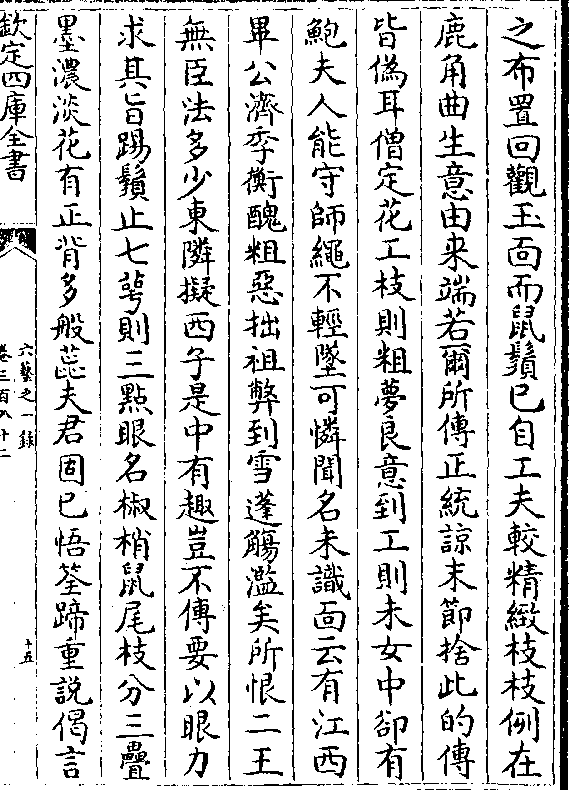 之布置回觀玉面而鼠鬚已自工夫較精緻枝枝例在
鹿角曲生意由来端若爾所傳正統諒末節捨此的傳
皆僞耳僧定花工枝則粗夢良意到工則未女中卻有
鮑夫人能守師繩不輕墜可憐聞名未識面云有江西
畢公濟季衡醜粗惡拙祖弊到雪蓬觴濫矣所恨二王
無臣法多少東隣擬西子是中有趣豈不傳要以眼力
求其旨踢鬚止七萼則三點眼名椒梢鼠尾枝分三疊
墨濃淡花有正背多般蕋夫君固已悟筌蹄重說偈言
欽定四庫全書
六藝之一録
卷三百八十二
十五